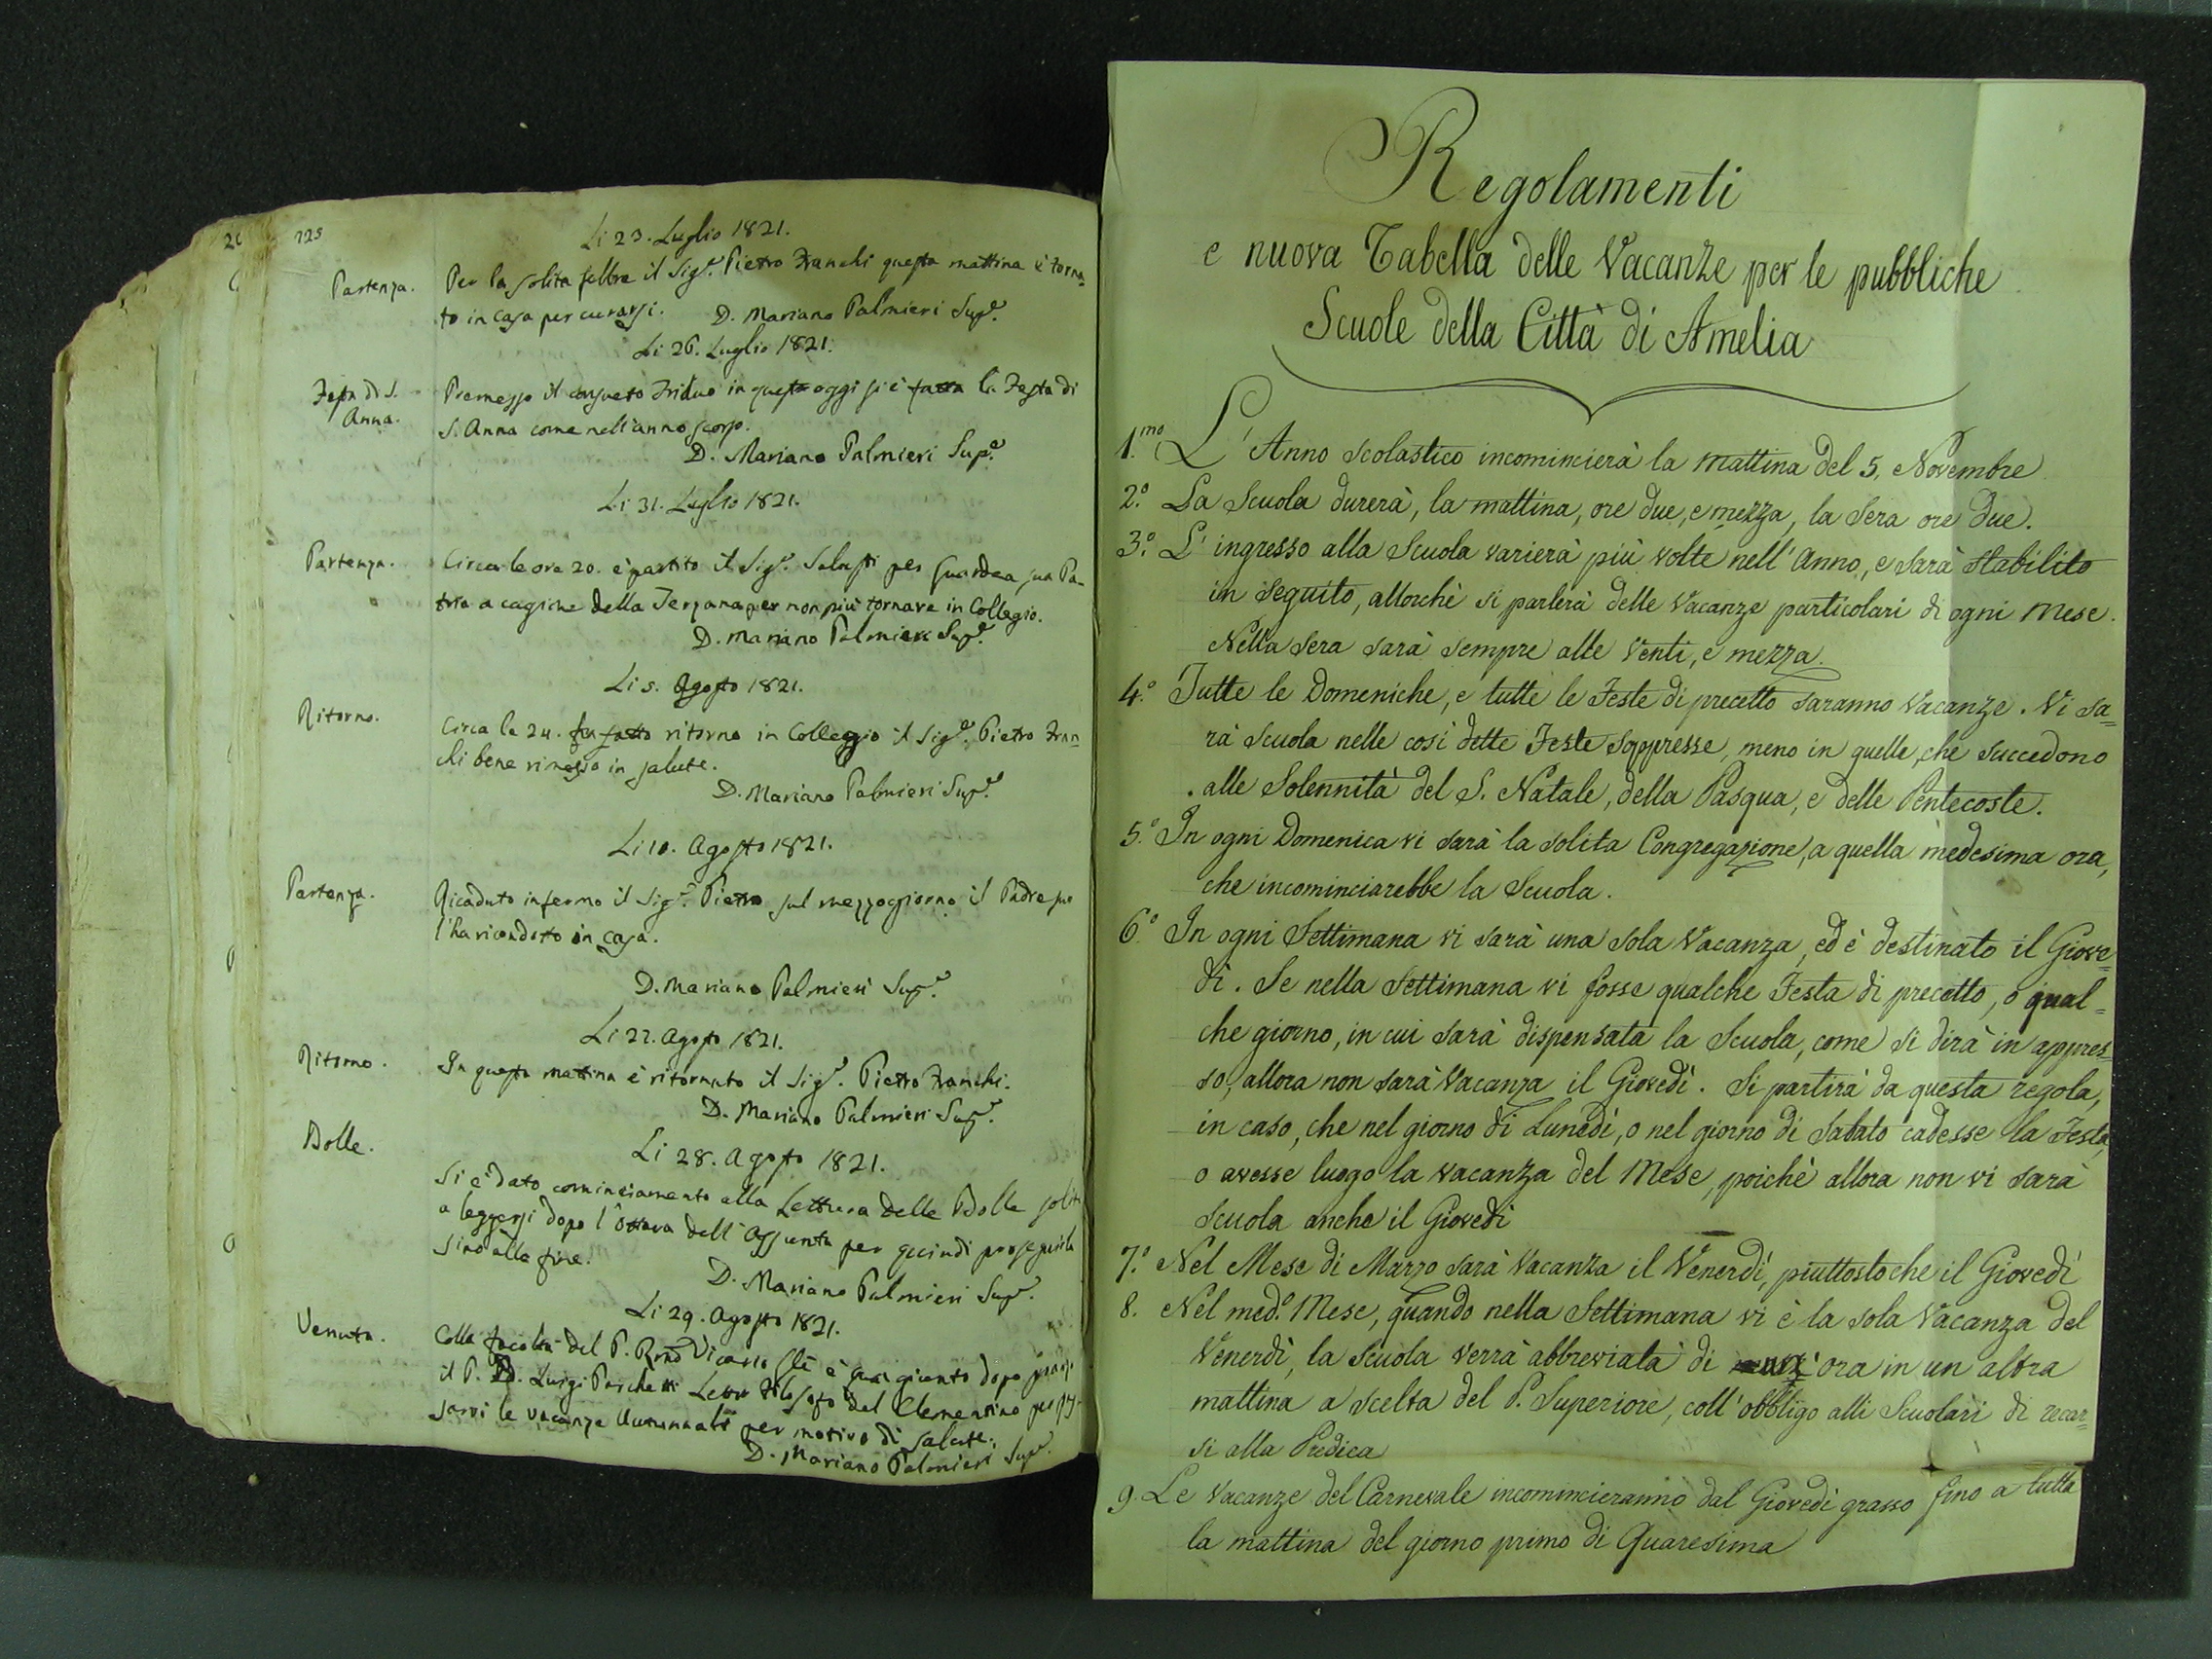 225
Li 23. Luglio 1821.
Partenza.
Per la solita febbre il Sig.e Pietro Franchi questa mattina è torna=
to in casa per curarsi. D. Mariano Palmieri Sup.e
Li 26. Luglio 1821.
Festa di S.
Anna.
Premesso il consueto Triduo in quest oggi si è fatta la Festa di
S. Anna come nell'anno scorso.
D. Mariano Palmieri Sup.e
Li 31. Luglio 1821.
Partenza.
Circa le ore 20. è partito il Sig.e per Guardea sua Pa=
tria a cagione della Terzana per non più tornare in Collegio.
D. Mariano Palmieri Sup.e
Li 5. Agosto 1821.
Ritorno.
Circa le 24. ha fatto ritorno in Colleggio il Sig.e Pietro Fran=
chi bene rimesso in salute.
D. Mariano Palmieri Sup.e
Li 10. Agosto 1821.
Partenza.
Ricaduto infermo il Sig.e Pietro sul mezzogiorno il Padre suo
l'ha ricondotto in casa.
D. Mariano Palmieri Sup.e
Li 22. Agosto 1821.
Ritorno.
In questa mattina è ritornato il Sig.e Pietro Franchi.
D. Mariano Palmieri Sup.e
Bolle.
Li 28. Agosto 1821.
Si è dato cominciamento alla Lettura delle Bolle solite
a leggersi dopo l'Ottava dell'Assunta per quindi proseguirla
sino alla fine.
D. Mariano Palmieri Sup.e
Li 29. Agosto 1821.
Venuta.
Colla facoltà del P. Rmo Vicario Gle è qui giunto dopo pranzo
il P. D. Luigi Parchetti Lettor Filosofo del Clementino per
sarvi le vacanze Autunnali per motivo di salute.
D. Mariano Palmieri Sup.e
Regolamenti
e nuova Tabella delle Vacanze per le pubbliche
Scuole della Città di Amelia
1.mo L'Anno scolastico incomincierà la mattina del 5. Novembre
2.o La Scuola durerà, la mattina, ore due, e mezza, la Sera ore due.
3.o L'ingresso alla Scuola varierà più volte nell'Anno, e sarà stabilito
in seguito, allorchè si parlerà delle Vacanze particolari di ogni Mese.
Nella sera sarà sempre alle Venti, e mezza.
4.o Tutte le Domeniche, e tutte le Feste di precetto saranno Vacanze. Vi sa=
rà Scuola nelle così dette Feste soppresse, meno in quelle, che succedono
alle Solennità del S. Natale, della Pasqua, e delle Pentecoste.
5.o In ogni Domenica vi sarà la solita Congregazione, a quella medesima ora,
che incominciarebbe la Scuola.
6.o In ogni Settimana vi sarà una sola Vacanza, ed è destinato il Giove=
dì. Se nella Settimana vi fosse qualche Festa di precetto, o qual=
che giorno, in cui sarà dispensata la Scuola, come si dirà in appres=
so, allora non sarà Vacanza il Giovedì. Si partirà da questa regola,
in caso, che nel giorno di Lunedì, o nel giorno di Sabato cadesse la Festa,
o avesse luogo la vacanza del Mese, poichè allora non vi sarà
Scuola anche il Giovedì
7.o Nel Mese di Marzo sarà Vacanza il Venerdì, piuttosto che il Giovedì
8. Nel med.o Mese, quando nella Settimana vi è la sola Vacanza del
Venerdì, la Scuola verrà abbreviata di mezz'ora in un altra
mattina a scelta del P. Superiore, coll'obbligo alli Scuolari di recar=
si alla Predica
9. Le Vacanze del Carnevale incomincieranno dal Giovedì grasso fino a tutta
la mattina del giorno primo di Quaresima